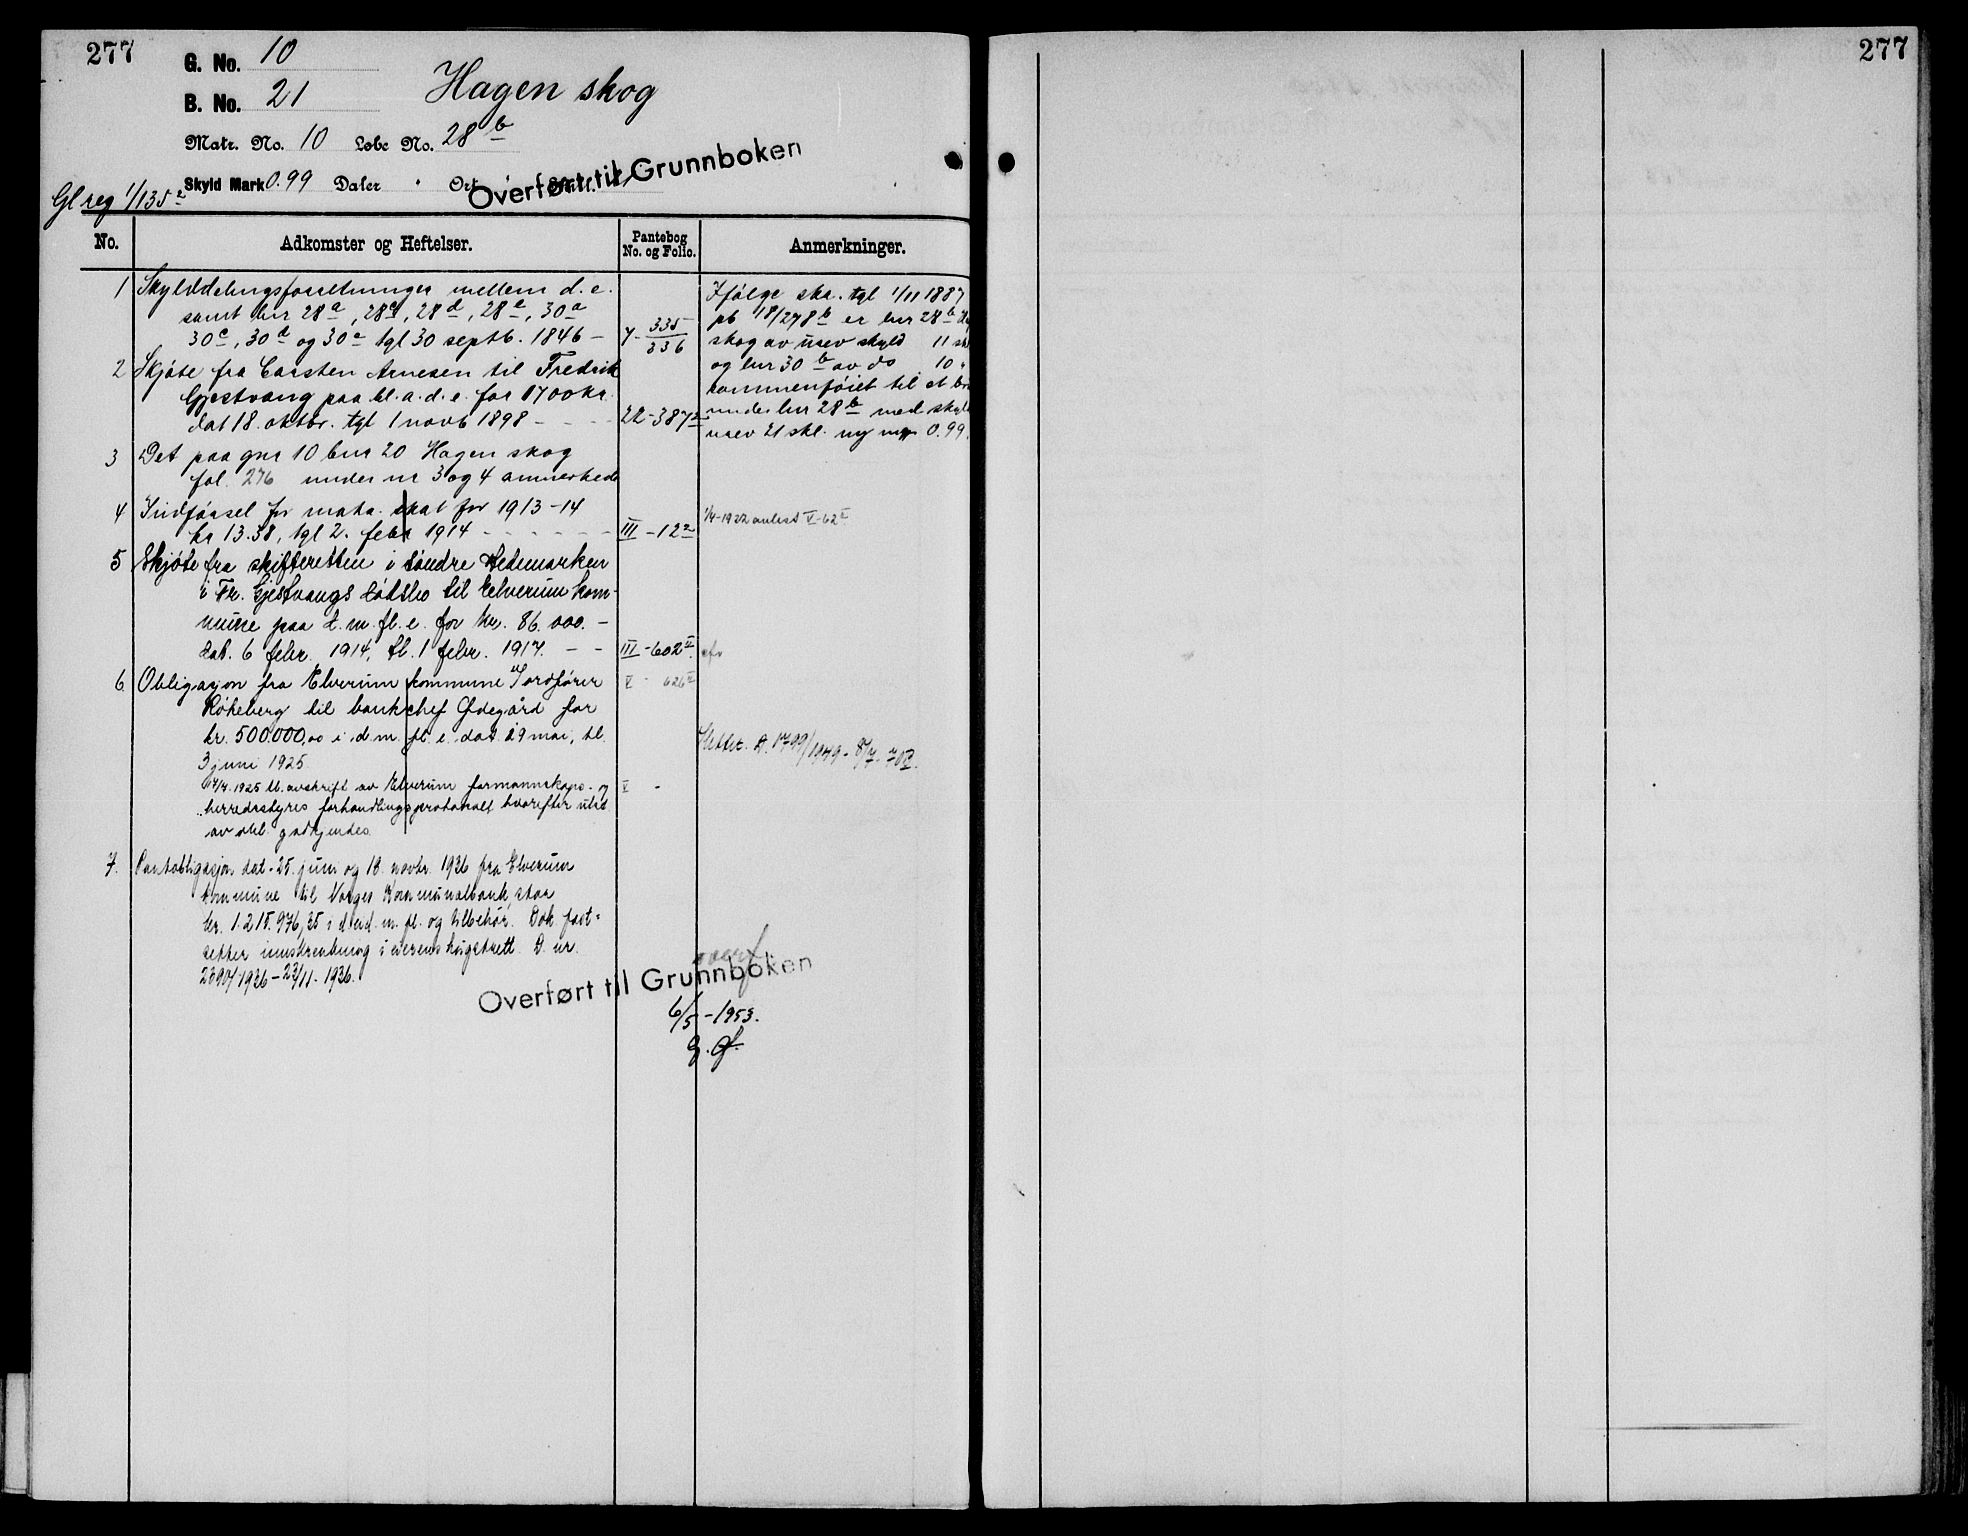 277
G. No. 10
Hagen skog
B. No. 21
Matr. No. 10 Løbe No. 28 b
Overført til Grunnboken
Skyld Mark 0.99 Daler " Ort
Gl reg 1/135 2
No. Adkomster og Heftelser. Pantebog No. og Folio. Anmerkninger.
1 Skylddelingsforretninger mellem d. e.
samt bnr 28 a, 28 c, 28 d, 28 e, 30 a
30 c, 30 d og 30 e tgl 30 septb. 1846 – 7 - 335/336
2 Skjøte fra Carsten Arnesen til Fredrik
Gjestvang paa bl. a. d. e. for 1700 kr.
dat 18. oktbr. tgl 1 novb 1898 – – – 22-387 2
3 Det paa gnr 10 bnr 20 Hagen skog
fol. 276 under nr 3 og 4 anmerkede
4 Indførsel for matr. skat for 1913-14
kr 13.38, tgl 2. febr 1914 – – – – – III-12 2
5 Skjøte fra skifteretten i søndre Hedemarken
i Fr. Gjestvangs dødsbo til Elverum kom-
mune paa d. m. fl. e. for kr. 86.000. –
dat. 6 febr. 1914, tl. 1 febr. 1917. – – III-602 II
6. Obligasjon fra Elverum kommune v/ordfører V - 626 II
Røkeberg til bankchef Ødegård for
kr. 500.000,00 i d. m. fl. e. dat. 29 mai, tl.
3 juni 1925.
17/7. 1925 tl. avskrift av Elverum formannskaps- og V -
herredsstyres forhandlingsprotokoll hvorefter utst.
av obl. godkjendes.
7. Pantobligasjon dat. 25. juni og 18. novbr. 1936 fra Elverum
kommune til Norges Kommunalbank, stor
kr. 1.215.976,35 i d. eid. m. fl. og tilbehør. Dok fast-
setter innskrenkning i eierens hugstrett. D. nr.
2890/1936 – 23/11. 1936.
Ifølge ska. tgl 1/11 1887
pb 18/278 b er bnr 28 b
skog av urev skyld 11
og bnr 30 b av do 10 "
sammenføiet til et
under bnr 28 b med
urev 21 skl. ny 0.99.
1/4-1922 avlest V-62 II
Slettet. D. 1799/1949 - 8/7. 70
overf
Overført til Grunnboken
6/5 -1953.
G. Ø.
277